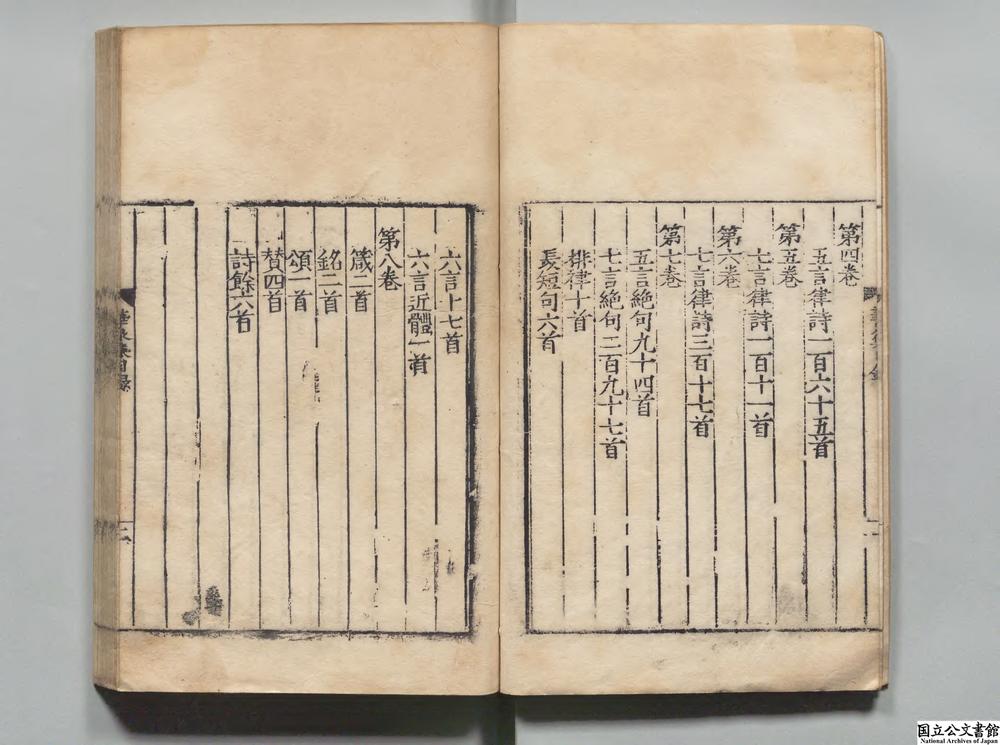 第四卷
五言律詩一百六十五首
第五卷
七言律詩一百十一首
第六卷
七言律詩三百十七首
第七卷
五言絶句九十四首
七言絶句二百九十七首
排律十首
長短句六首
六言十七首
六言近體一首
第八卷
箴二首
銘二首
頌一首
賛四首
詩餘六首
国立公文書館
National Archives of Japan